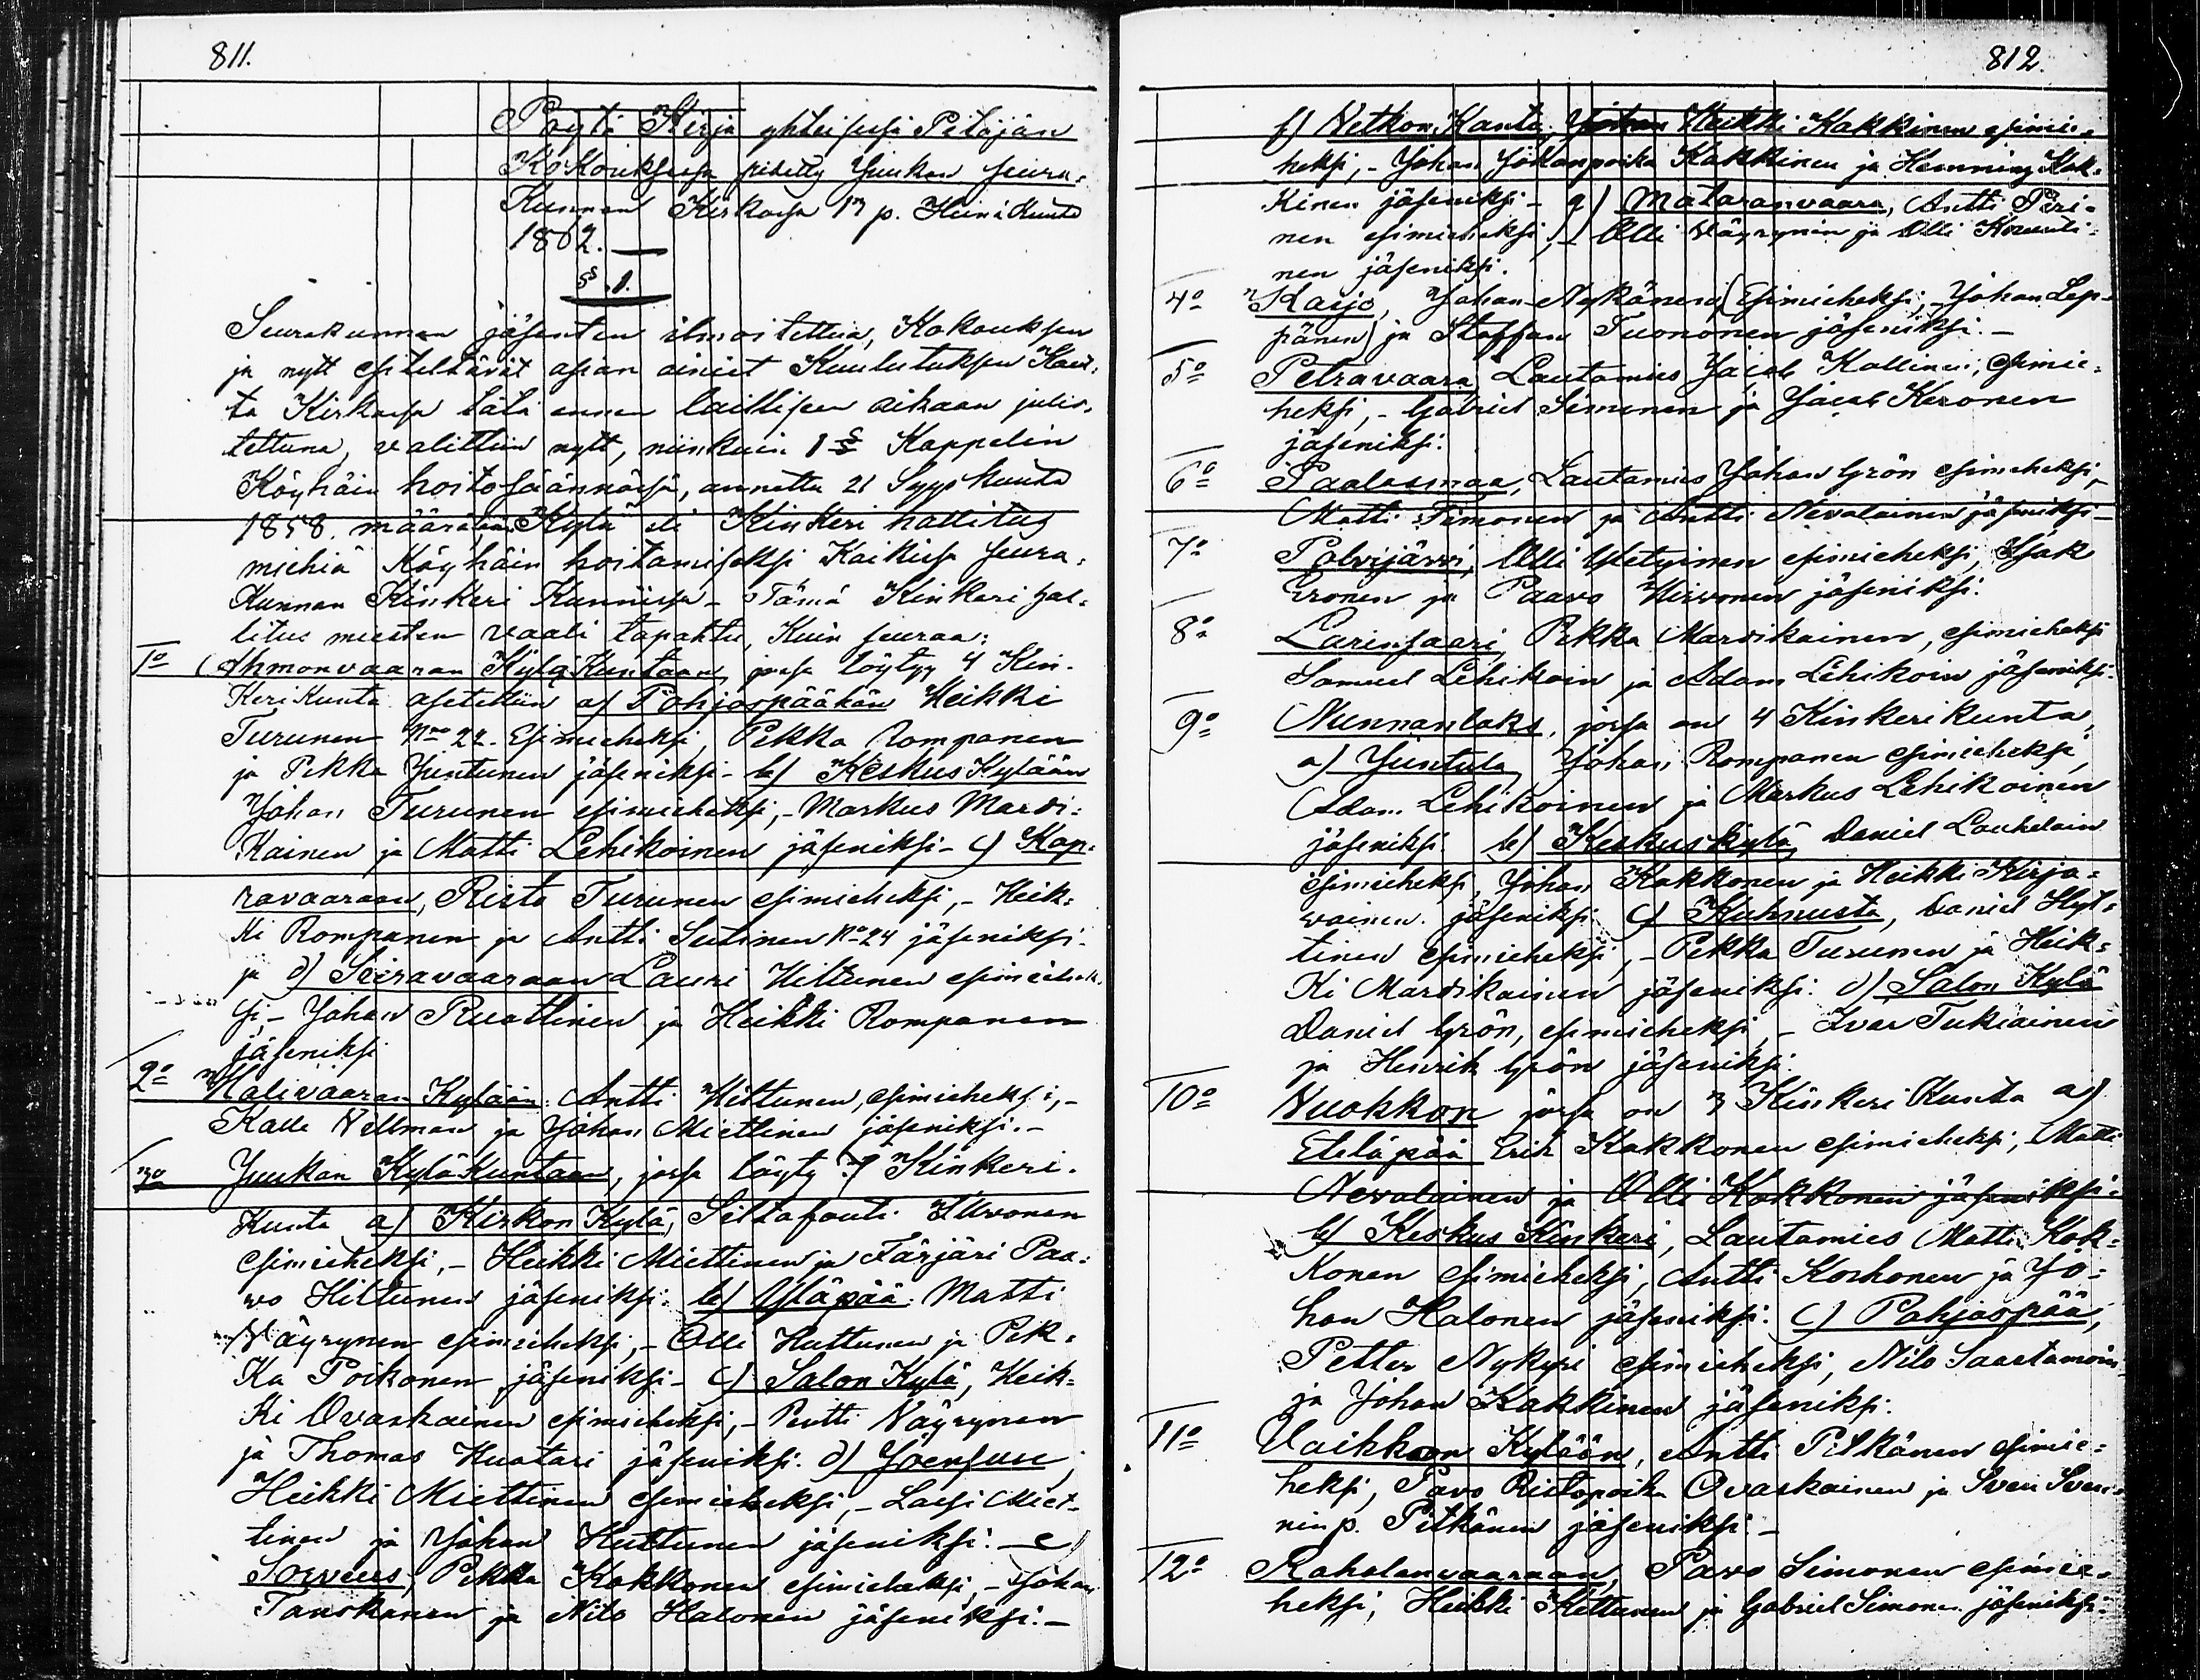 811.
Pöytä Kirja yhteisesä Pitäjän
Kokouksesa pidetty Juukan seura-
Kunnan Kirkosa 13 p. Heinä Kuuta
1862.
§ .1.
Seurakunnan jäsenten ilmoitettua, Kokouksen
ja nytt esiteltävät asian ainiet Kuulutuksen Kaut-
ta Kirkosa tätä ennen laillisen aikaan julis-
tettuna, valittiin nytt, niinkuin 1 § Kappelin
Köyhäin hoitosäännösä, annettu 21 Syys Kuuta
1858. määrätään, Kylä eli Kinkeri hallitus
miehiä Köyhäin hoitamiseksi Kaikisa seura-
Kunnan Kinkeri Kunnissa - Tämä Kinkeri hal-
litus miesten vaali tapahtu, Kuin seuraa:
1o Ahmonvaaran Kylä Kuntaan, josa löytyy 4 Kin-
Keri Kunta asetettiin a) Pohjospäähän Heikki
Turunen No 22. Esimieheksi, Pekka Rompanen
ja Pekka Juntunen jäseniksi - b) Keskus Kylään
Johan Turunen esimieheksi, - Markus Mardi-
Kainen ja Matti Lehikoinen jäseniksi - c) Kop-
ravaaraan, Risto Turunen esimieheksi, - Heik-
Ki Rompanen ja Antti Sutinen No 24 jäseniksi -
ja d) Siiravaaraan Lauri Hiltunen esimiehek-
si, - Johan Ruottinen ja Heikki Rompanen
jäseniksi
2o Halivaaran Kylään Antti Hiltunen, esimieheksi, -
Kalle Vellman ja Johan Miettinen jäseniksi. -
3o Juukan Kylä Kuntaan, josa löyty 7 Kinkeri-
Kunta a) Kirkon Kylä, Siltafouti Hirvonen
esimieheksi, - Heikki Miettinen ja Färjäri Paa-
vo Hiltunen jäseniksi. b) Yläpää Matti
Väyrynen esimieheksi, - Olli Huttunen ja Pek-
Ka Poikonen jäseniksi - c) Salon Kylä, Heik-
Ki Ovaskainen esimieheksi, - Pertti Väyrynen
ja Thomas Huotari jäseniksi. d) Joensuu,
Heikki Miettinen esimieheksi, - Lassi Miet-
tinen ja Johan Huttunen jäseniksi. - e)
Pekka Kokkonen esimieheksi, - Johan
Tanskanen ja Nils Halonen jäseniksi. -
812.
f) Vetkon Kanta, Johan Heikki Kakkinen esimie-
heksi, - Johan Johanpoika Kakkinen ja Hemming Kak-
Kinen jäseniksi - g) Mataranvaara, Antti Piri-
nen esimieheksi, - Olli Väyrynin ja Olli
nen jäseniksi.
4o Kajo, Johan Nykänen Esimieheksi, - Johan Lep-
pänen ja Staffan Tuononen jäseniksi. -
5o Petravaara, Lautamies Jacob Kallinen, esimie-
heksi, - Gabriel Simonen ja Jacob Keronen
jäseniksi.
6o Paalasmaa, Lautamies Johan Grön esimieheksi, -
Matti Timonen ja Antti Nevalainen jäseniksi -
7o Polvijärvi, Olli Ystetyinen esimieheksi, Isak
Eronen ja Paavo Hirvonen jäseniksi.
8o Larinsaari, Pekka Mardikainen, esimieheksi
Samuel Lehikoin ja Adam Lehikoin jäseniksi.
9o Nunnanlaks, josa on 4 Kinkerikunta,
a) Juntula, Johan Rompanen esimieheksi,
Adam Lehikoinen ja Markus Lehikoinen
jäseniksi. b) Keskuskylä, Daniel Laukelain
esimieheksi, Johan Kokkonen ja Heikki Kirja-
vainen jäseniksi c) Kuhnusta, Daniel Hyt-
tinen esimieheksi, - Pekka Turunen ja Heik-
Ki Mardikainen jäseniksi. d) Salon Kylä
Daniel Grön, esimieheksi, - Ivar Tukiainen
ja Henrik Grön jäseniksi.
10o Vuokkon josa on 3 Kinkeri Kunta a)
Eteläpää Erik Kokkonen esimieheksi, Matti
Nevalainen ja Olli Kokkonen jäseniksi.
b) Keskus Kinkeri, Lautamies Matti Kok-
Konen esimieheksi, Antti Korhonen ja Jo-
han Halonen jäseniksi. c) Pohjospää,
Petter Nykyri esimieheksi, Nils Saastamoin
ja Johan Kakkinen jäseniksi.
11o Vaikkoon Kylään, Antti Pitkänen esimie-
heksi, Pavo Ristopoika Ovaskainen ja Sven Sven-
nin p. Pitkänen jäseniksi -
12o Raholanvaaraan, Pavo Simonen esimie-
heksi, Heikki Kettunen ja Gabriel Simonen jäseniksi.